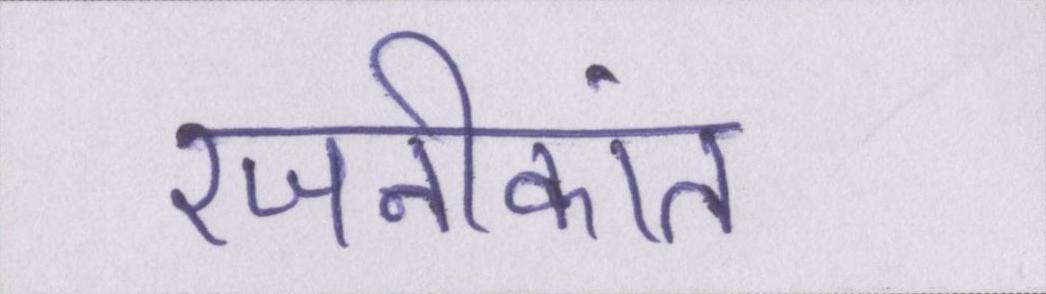 रजनीकांत